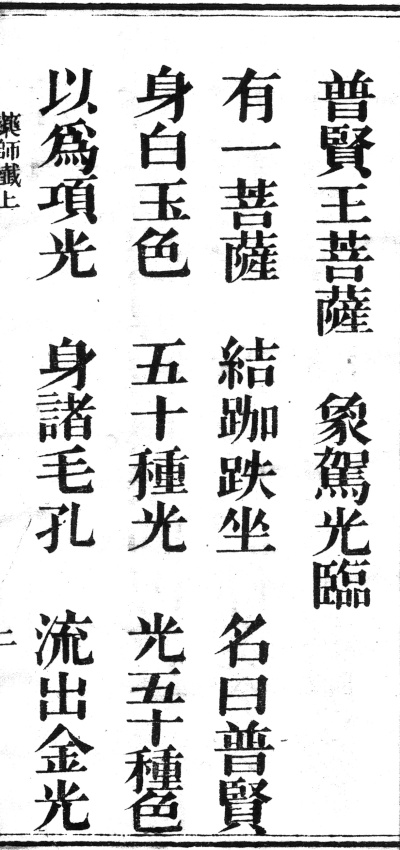 普賢王菩薩　象駕光臨
有一菩薩　結跏趺坐　名曰普賢
身白玉色　五十種光　光五十種色
以為項光　身諸毛孔　流出金光
藥師懺上
二